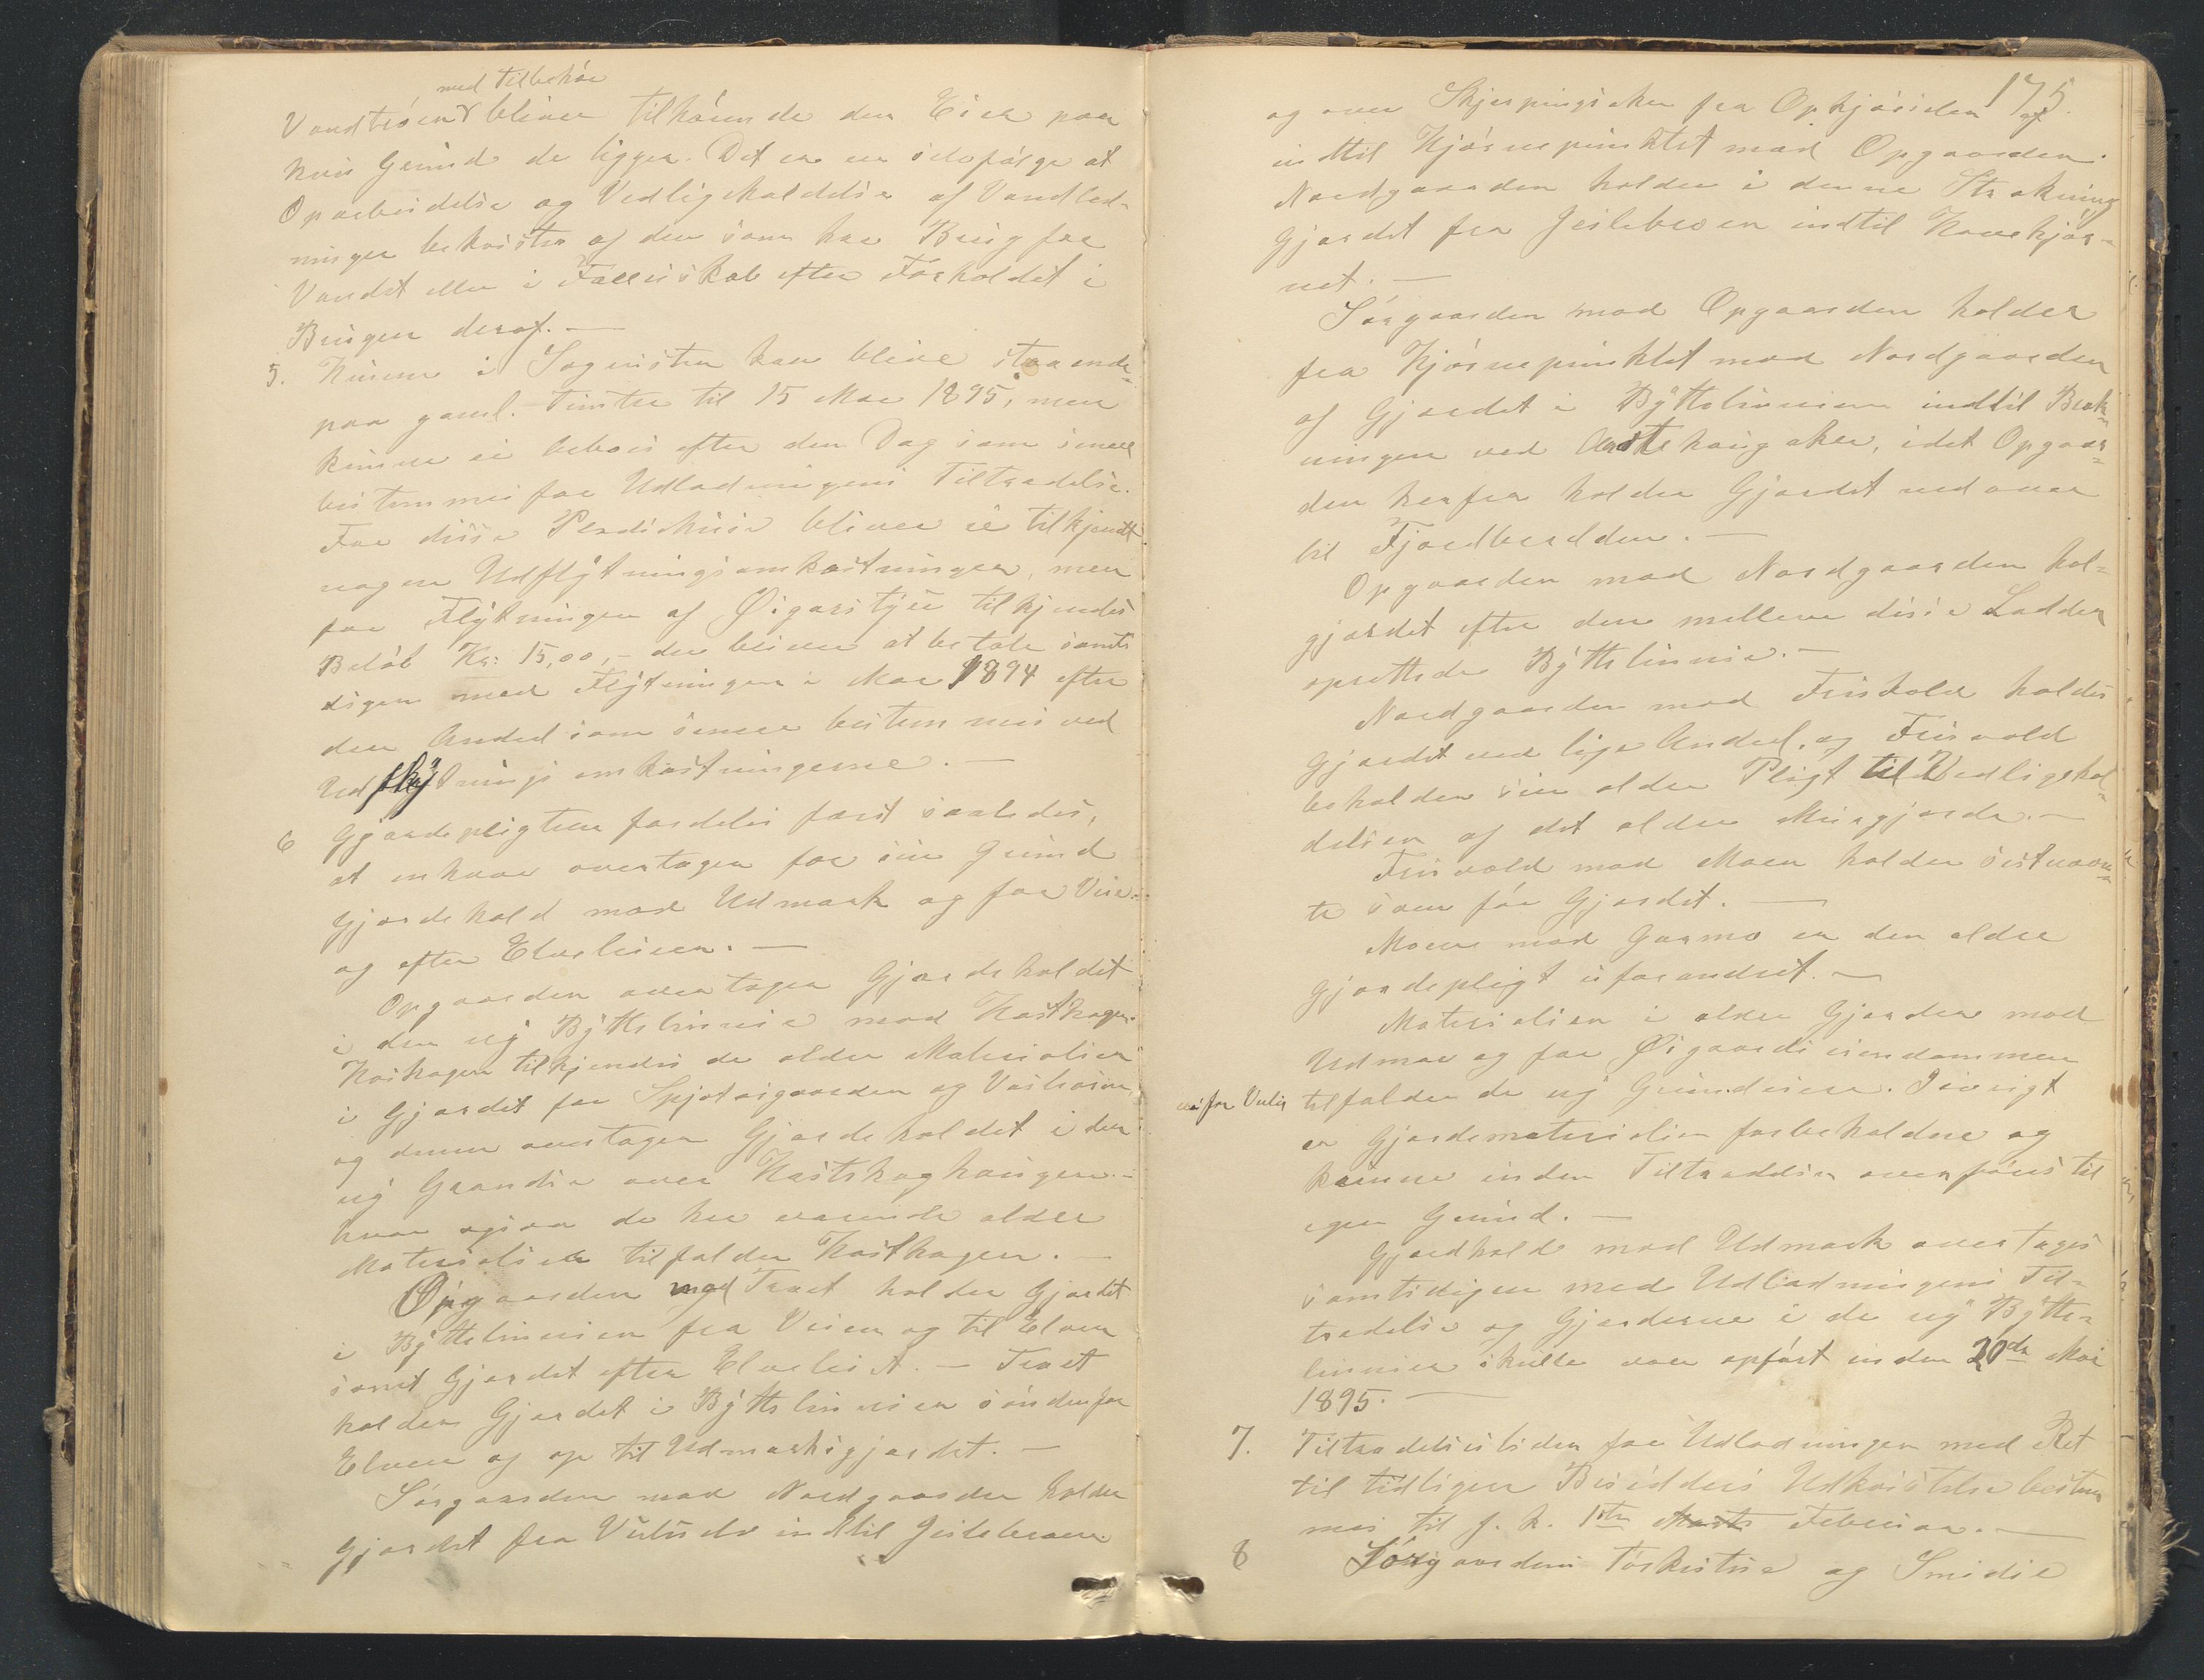 med Tilbehör
Vandtröen bliver tilhörende den Eier paa
hvis Grund de ligger. Det er en selvfölge at
Oparbeidelse og Vedligeholdelse af Vandled-
ninger bekostes af den som har Brug for
Vandet eller i Fællesskab efter Forholdet i
Brugen deraf. —
5. Husene i Sognisten kan blive staaende
paa gaml. Tomter til 15 Mai 1895, men
kunne ei beboes efter den Dag som senere
bestemmes for Udlodningens Tiltrædelse.
For disse Pladshuse bliver ei tilkjendt
nogen Udflytningsomkostninger, men
for Flytningen af Øigarstue tilkjendes
Beløb Kr: 15,00,- der bliver at betale samti-
digen med Flytningen i Mai 1894 efter
den Andel som senere bestemmes ved
Udflytningsomkostningerne. —
6 Gjærdepligten fordeles først saaledes,
at enhver overtager for sin Grund
Gjærdehold mod Udmark og for Veie
og efter Elveleien. —
Opgaarden overtager Gjærdeholdet
i den ny Byttelinnie mod Kosthagen.
Koshagen tilkjendes de ældre Materialier
i Gjærdet for Spjotsigaarden og Voshaim,
og denne overtager Gjærdeholdet i den
ny Grændse over Kosthaghaugen. —
hvor ogsaa de her værende ældre
Materialier tilfalder Kosthagen. —
Opgaarden mod Træet holder Gjærdet
i Byttelinnien fra Veien og til Elven
samt Gjærdet efter Elveleiet. — Træet
holder Gjærdet i Byttelinnien søndenfor
Elven og op til Udmarksgjærdet. —
Sörgaarden mod Nordgaarden holder
Gjærdet fra Veiliude indtil Geilebroen
175.
og over Skjerpingsaker fra Ophjösiden af
indtil Hjörnepunktet mod Opgaarden.
Nordgaarden holder i denne Strækning
Gjærdet fra Geilebroen indtil Hovehjör-
net. —
Sörgaarden mod Opgaarden holder
fra Hjörnepunktet mod Nordgaarden
af Gjærdet i Byttelinnien indtil Bræk-
ningen ved haugaker, idet Opgaar-
den herfra holder Gjærdet nedover
til Fjordbredden. —
Opgaarden mod Nordgaarden hol-
gjærdet efter den mellem disse Lodder
oprettede Byttelinnie. —
Nordgaarden mod Friisvold holdes
Gjærdet ved lige Andel, og Friisvold
beholder sin ældre Pligt til Vedligehol-
delsen af det ældre Muurgjærde. —
Friisvold mod Moen holder sistnævn-
te som för Gjærdet. —
Moen mod Garmo er den ældre
Gjærdepligt uforandret. —
Materialier i ældre Gjærder mod
Udmar og for Øigaardseiendommen
ei for Veilis tilfalder de ny Grundeiere. Iövrigt
er Gjærdematerialier forbeholdne og
kunne inden Tiltrædelsen overföres til
egen Grund. —
Gjærdhold mod Udmark overtages
samtidigen med Udlodningens Til-
trædelse og Gjærderne i de ny Bytte-
linnier skulle være opfört inden 20de Mai
1895. —
7. Tiltrædelsestiden for Udlodningen med Ret
til tidligere Besidders Udkastelse bestem
mes til f. k. 1ste Marts Februar. —
8 Sörgaardens Törkestue og Smidie